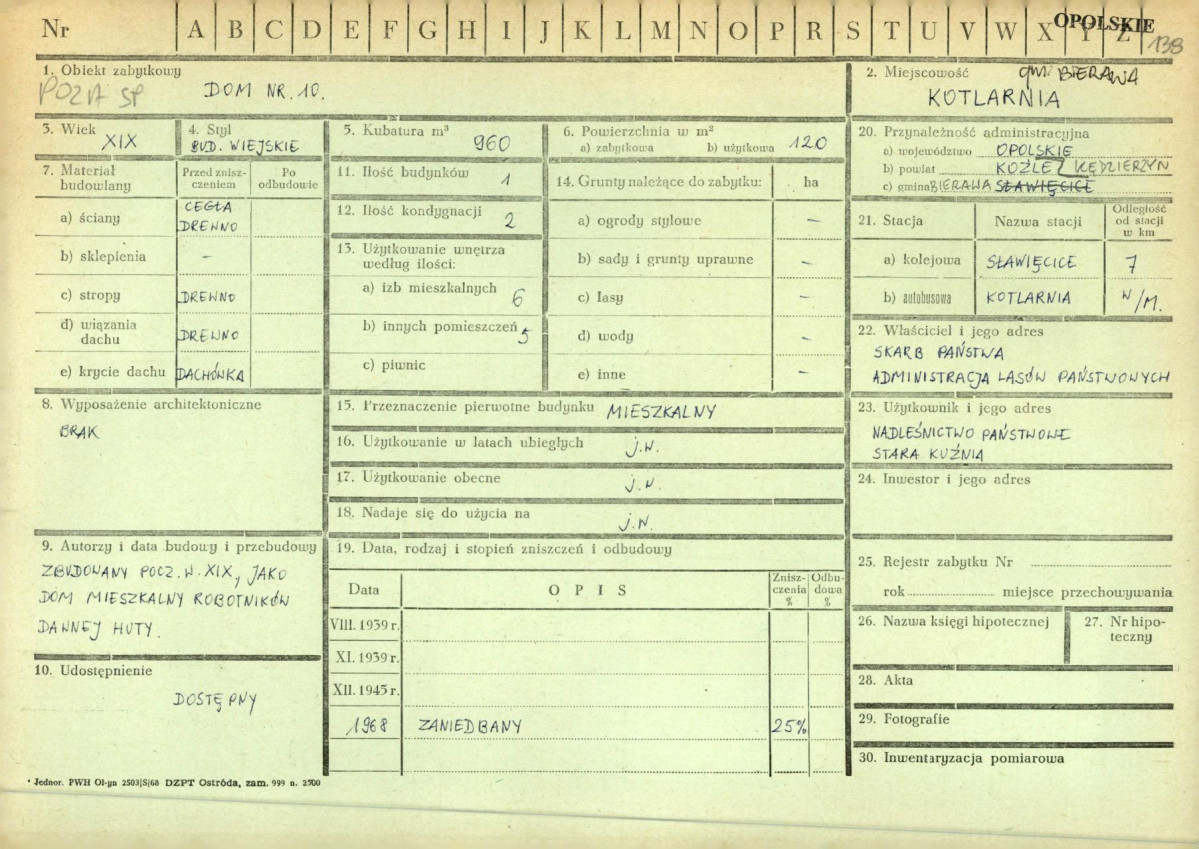 Nr A B C D E F G H I J K L M N O P R S T U V W X Y Z OPOLSKIE
138
1. Obiekt zabytkowy
POZA SP DOM NR. 10.
2. Miejscowość gm. BIERAWA
KOTLARNIA
3. Wiek
XIX
4. Styl
BUD. WIEJSKIE
5. Kubatura m³ 960
6. Powierzchnia w m²
a) zabytkowa b) użytkowa 120
7. Materiał budowlany
Przed zniszczeniem
Po odbudowie
a) ściany CEGŁA
DREWNO
b) sklepienia –
c) stropy DREWNO
d) wiązania dachu DREWNO
e) krycie dachu DACHÓWKA
8. Wyposażenie architektoniczne
BRAK
9. Autorzy i data budowy i przebudowy
ZBUDOWANY POCZ. W. XIX, JAKO
DOM MIESZKALNY ROBOTNIKÓW
DAWNEJ HUTY.
10. Udostępnienie
DOSTĘPNY
11. Ilość budynków 1
12. Ilość kondygnacji 2
13. Użytkowanie wnętrza
według ilości:
a) izb mieszkalnych 6
b) innych pomieszczeń 5
c) piwnic
14. Grunty należące do zabytku: ha
a) ogrody stylowe –
b) sady i grunty uprawne –
c) lasy –
d) wody –
e) inne –
15. Przeznaczenie pierwotne budynku MIESZKALNY
16. Użytkowanie w latach ubiegłych j.w.
17. Użytkowanie obecne j.w.
18. Nadaje się do użycia na j.w.
19. Data, rodzaj i stopień zniszczeń i odbudowy
Data OPIS Zniszczenia % Odbudowa %
VIII. 1939 r.
XI. 1939 r.
XII. 1945 r.
1968 ZANIEDBANY 25%
20. Przynależność administracyjna
a) województwo OPOLSKIE
b) powiat KOŹLE KĘDZIERZYN
c) gmina BIERAWA SŁAWIĘCICE
21. Stacja Nazwa stacji Odległość od stacji w km
a) kolejowa SŁAWIĘCICE 7
b) autobusowa KOTLARNIA W/M.
22. Właściciel i jego adres
SKARB PAŃSTWA
ADMINISTRACJA LASÓW PAŃSTWOWYCH
23. Użytkownik i jego adres
NADLEŚNICTWO PAŃSTWOWE
STARA KUŹNIA
24. Inwestor i jego adres
25. Rejestr zabytku Nr
rok miejsce przechowywania
26. Nazwa księgi hipotecznej
27. Nr hipoteczny
28. Akta
29. Fotografie
30. Inwentaryzacja pomiarowa
* Jednor. PWH Ol-yn 2503|S|68 DZPT Ostróda, zam. 999 n. 2500